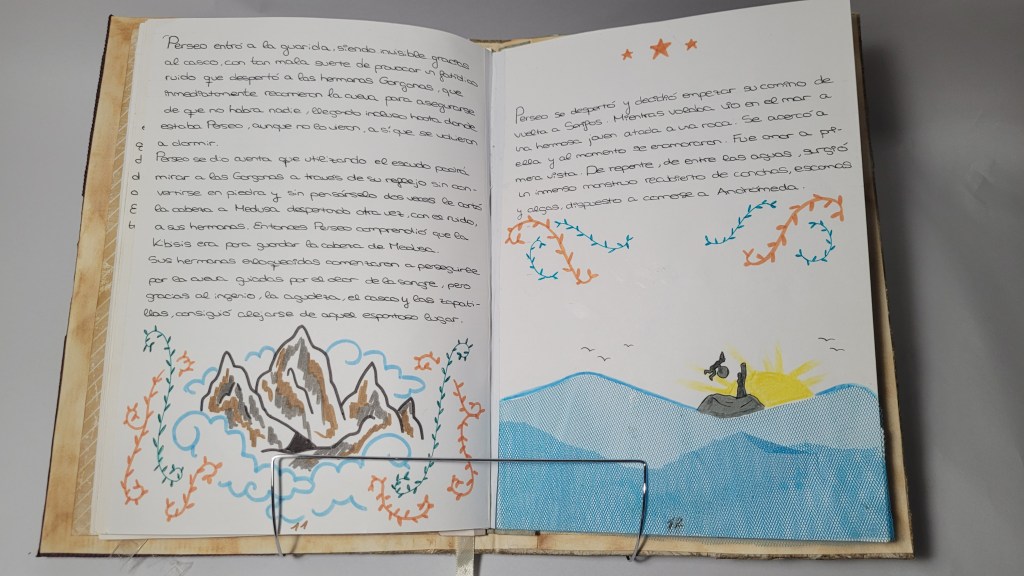 Perseo entró a la guarida, siendo invisible gracias
al casco, con tan mala suerte de provocar un fatídico
ruido que despertó a las hermanas Gorgonas, que
inmediatamente recorrieron la cueva para asegurarse
de que no había nadie, llegando incluso hasta donde
estaba Perseo, aunque no lo vieron, así que se volvieron
a dormir.
Perseo se dio cuenta que utilizando el escudo podría
mirar a las Gorgonas a través de su reflejo sin con-
vertirse en piedra y sin pensárselo dos veces le cortó
la cabeza a Medusa despertando otra vez, con el ruido,
a sus hermanas. Entonces Perseo comprendió que la
Kibsis era para guardar la cabeza de Medusa.
Sus hermanas enloquecidas comenzaron a perseguirle
por la cueva guiadas por el olor de la sangre, pero
gracias al ingenio, la agudeza, el casco y las zapati-
llas, consiguió alejarse de aquel espantoso lugar.
11
Perseo se despertó y decidió empezar su camino de
vuelta a Serifos. Mientras volaba vio en el mar a
una hermosa joven atada a una roca. Se acercó a
ella y al momento se enamoraron. Fue amor a pri-
mera vista. De repente, de entre las aguas, surgió
un inmenso monstruo recubierto de conchas, escamas
y algas, dispuesto a comerse a Andrómeda.
12